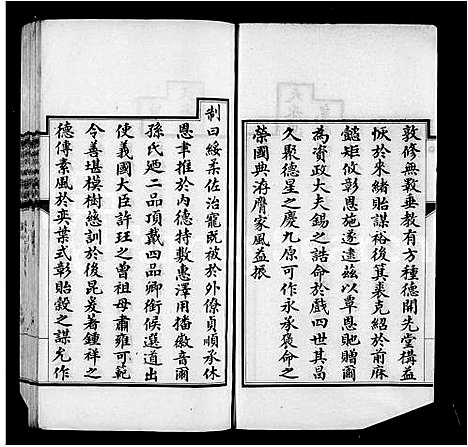 敦修無斁垂教有方種德開先堂構益
恢於來緒貽謀裕後箕裘克紹於前麻
懿矩攸彰恩施遂逮兹以覃恩貤贈爾
為資政大夫錫之誥命於戲四世其昌
久聚德星之慶九原可作永承褒命之
榮國典洊膺家風益振
制曰綏柔佐治寵既被於外僚貞順承休
恩聿推於內德特敷惠澤用播徽音爾
孫氏廼二品頂戴四品卿銜候選道出
使義國大臣許珏之曾祖母肅雍可範
令善堪模樹慈訓於後昆爰著鍾祥之
德傳素風於奕葉式彰貽穀之謀允作